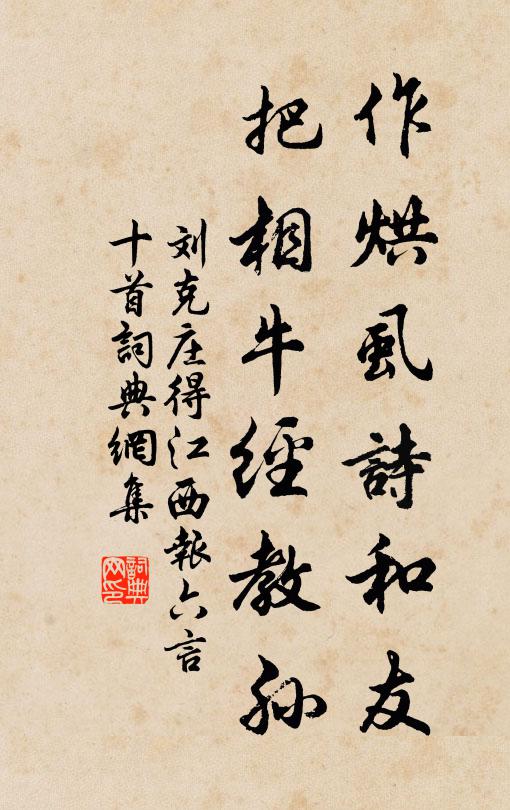 作烘虱詩和友
把相牛經教孙
刘克庄得江西報六言
十首詞典網集
詞典网印